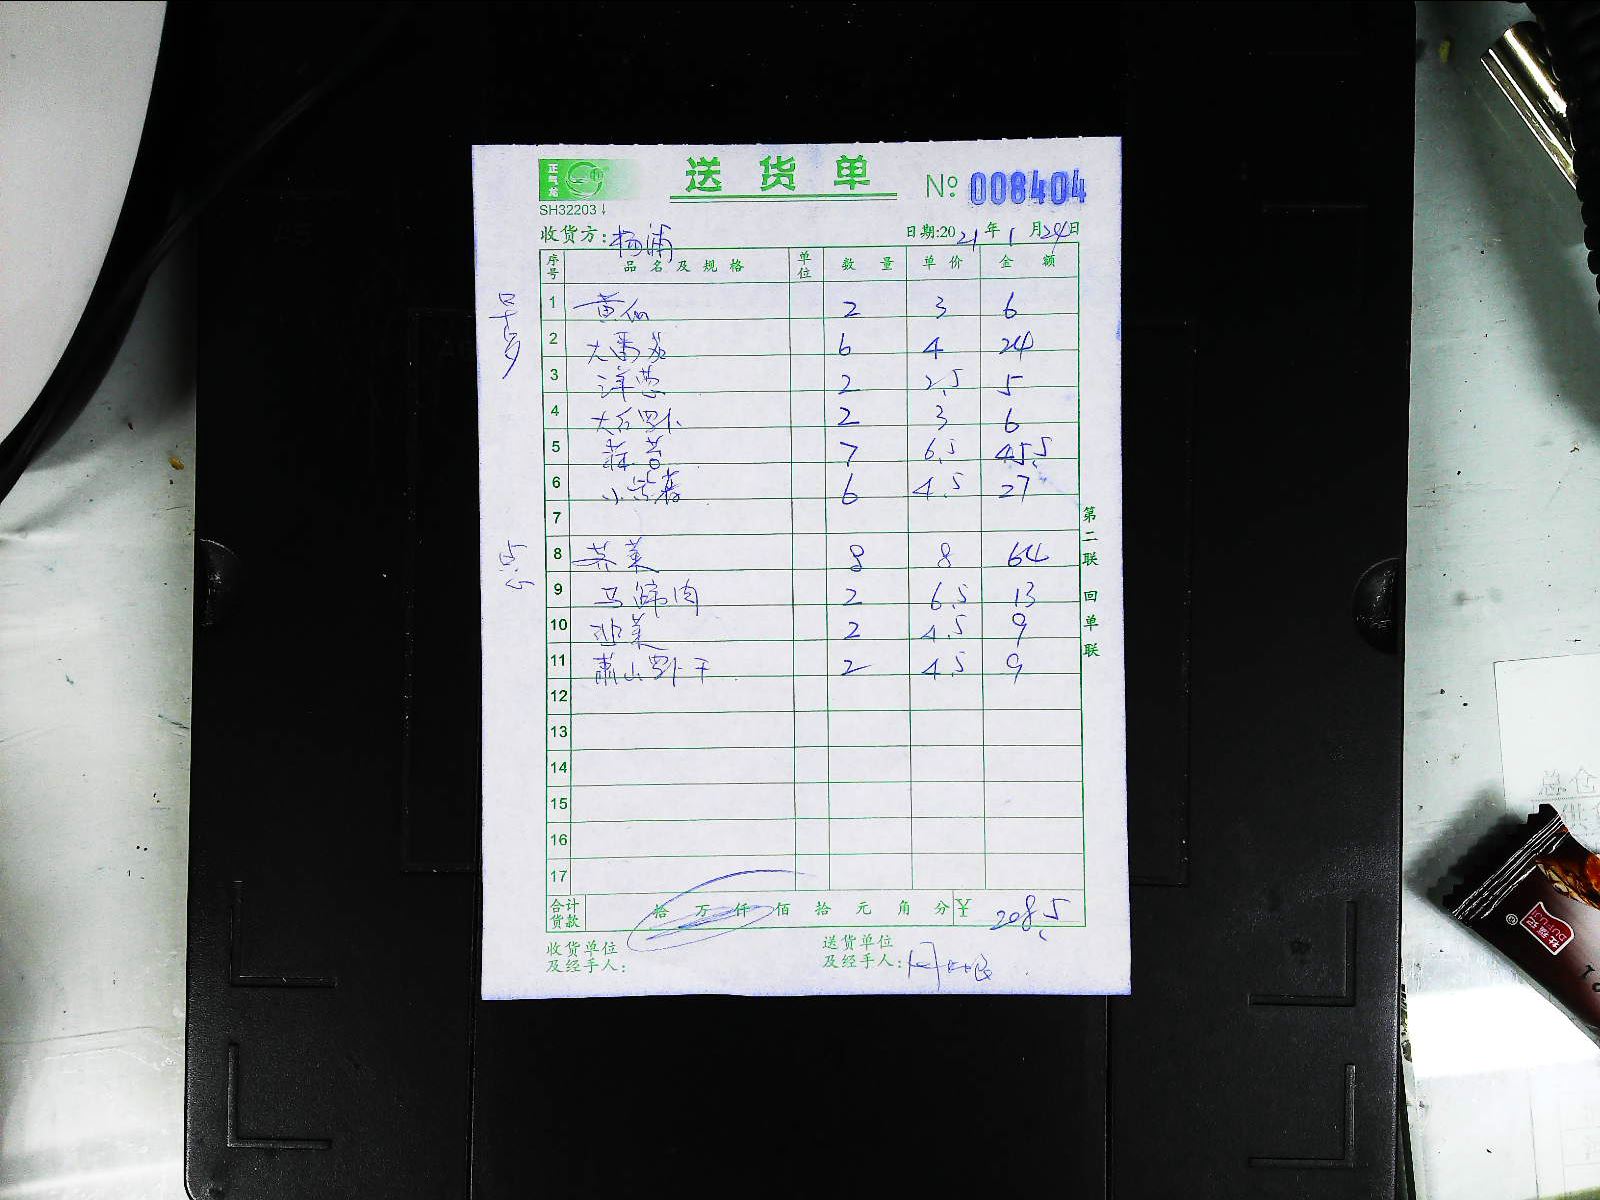 正气龙
送货单
№ 008404
SH32203↓
收货方: 杨浦
日期:2021年1月24日
序号 品名及规格 单位 数量 单价 金额
1 黄瓜 2 3 6
2 大番茄 6 4 24
3 洋葱 2 2.5 5
4 大白罗卜 2 3 6
5 2 7 6.5 45.5
6 小 6 4.5 27
7
8 荠菜 8 8 64
9 马蹄肉 2 6.5 13
10 韭菜 2 4.5 9
11 萧山罗卜干 2 4.5 9
12
13
14
15
16
17
第二联 回单联
合计货款 拾 万 仟 佰 拾 元 角 分 ¥ 208.5
收货单位及经手人:
送货单位及经手人:
总仓